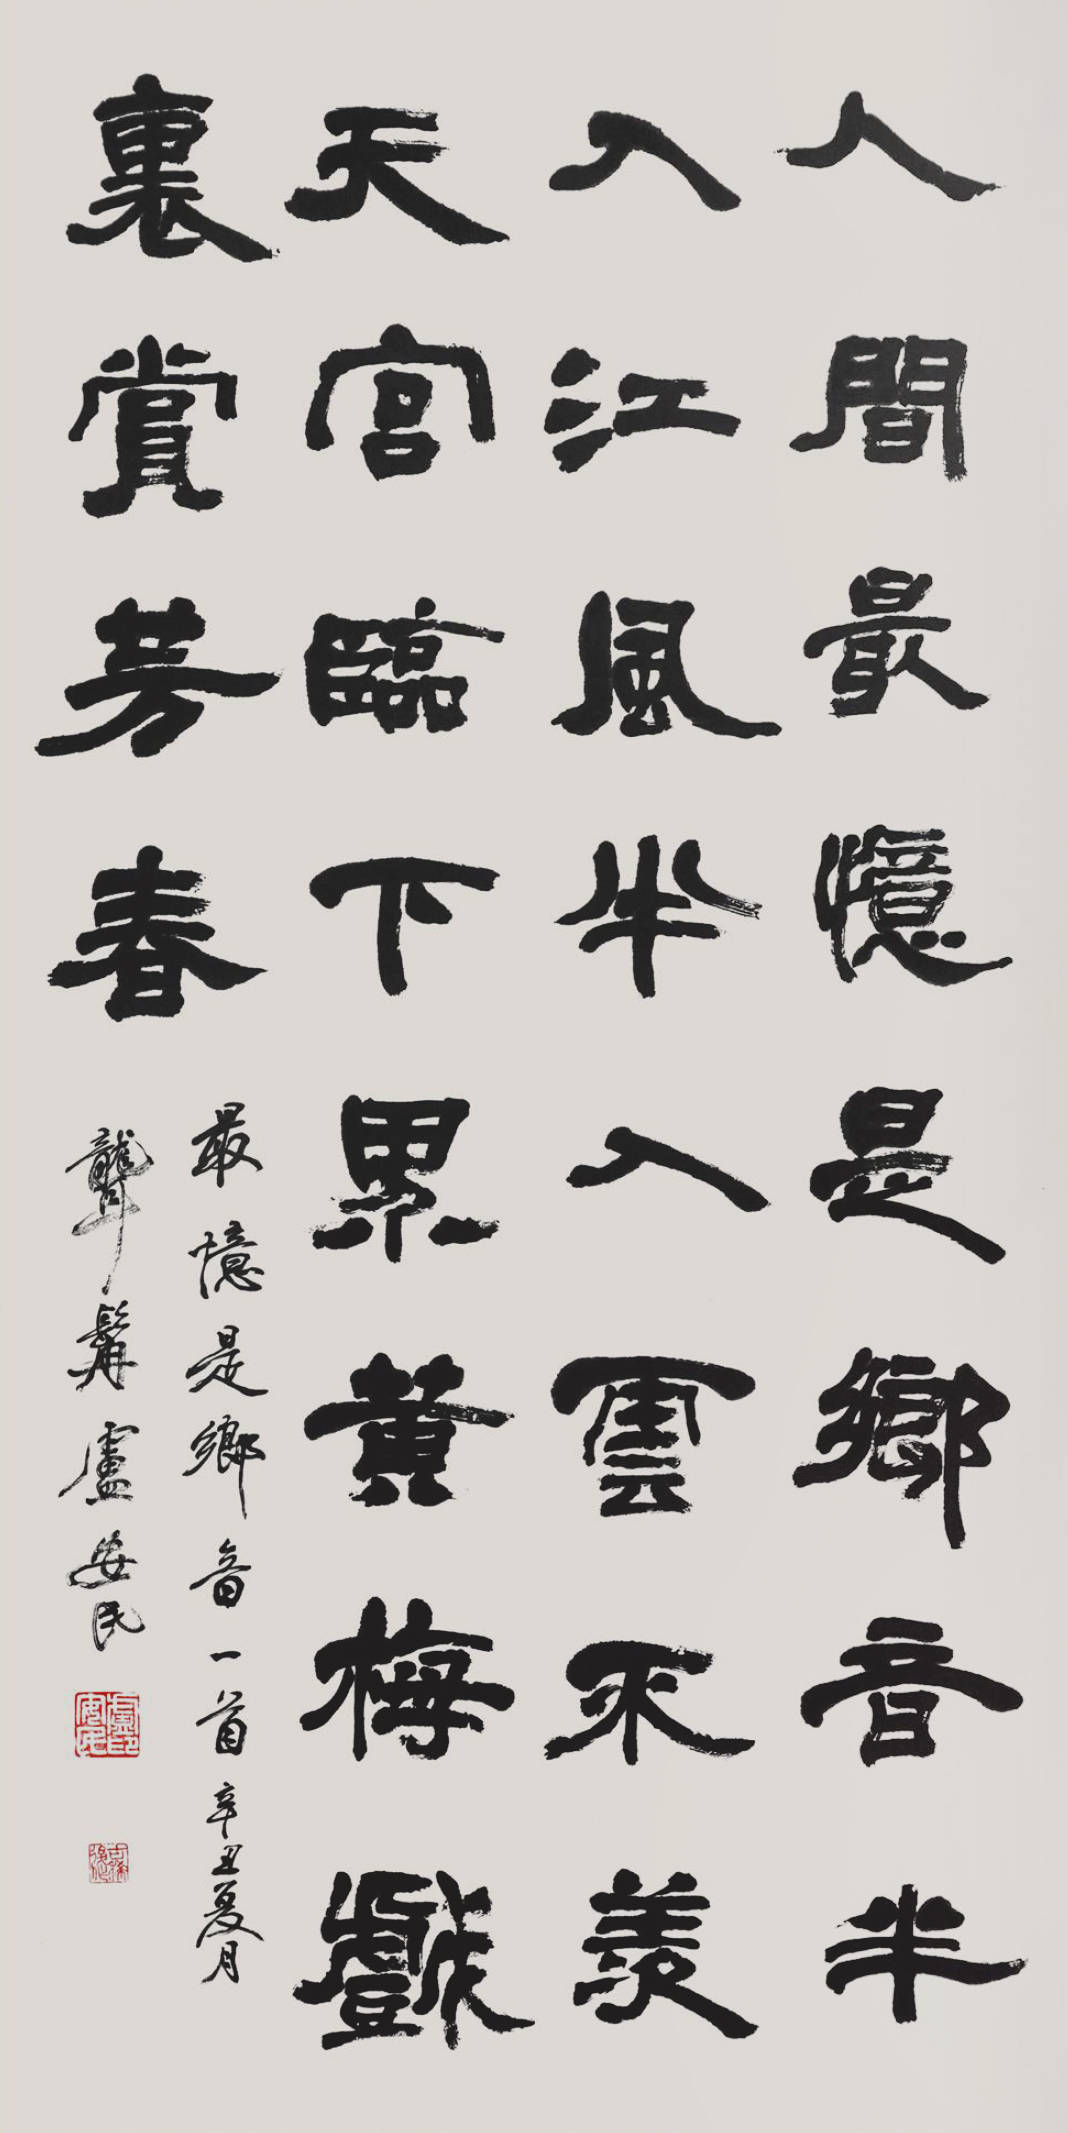 人間最憶是鄉音半
入江風半入雲不羨
天宮臨下界黃梅戲
裏賞芳春
最憶是鄉音一首辛丑夏月
聾髯盧安民
盧印安民